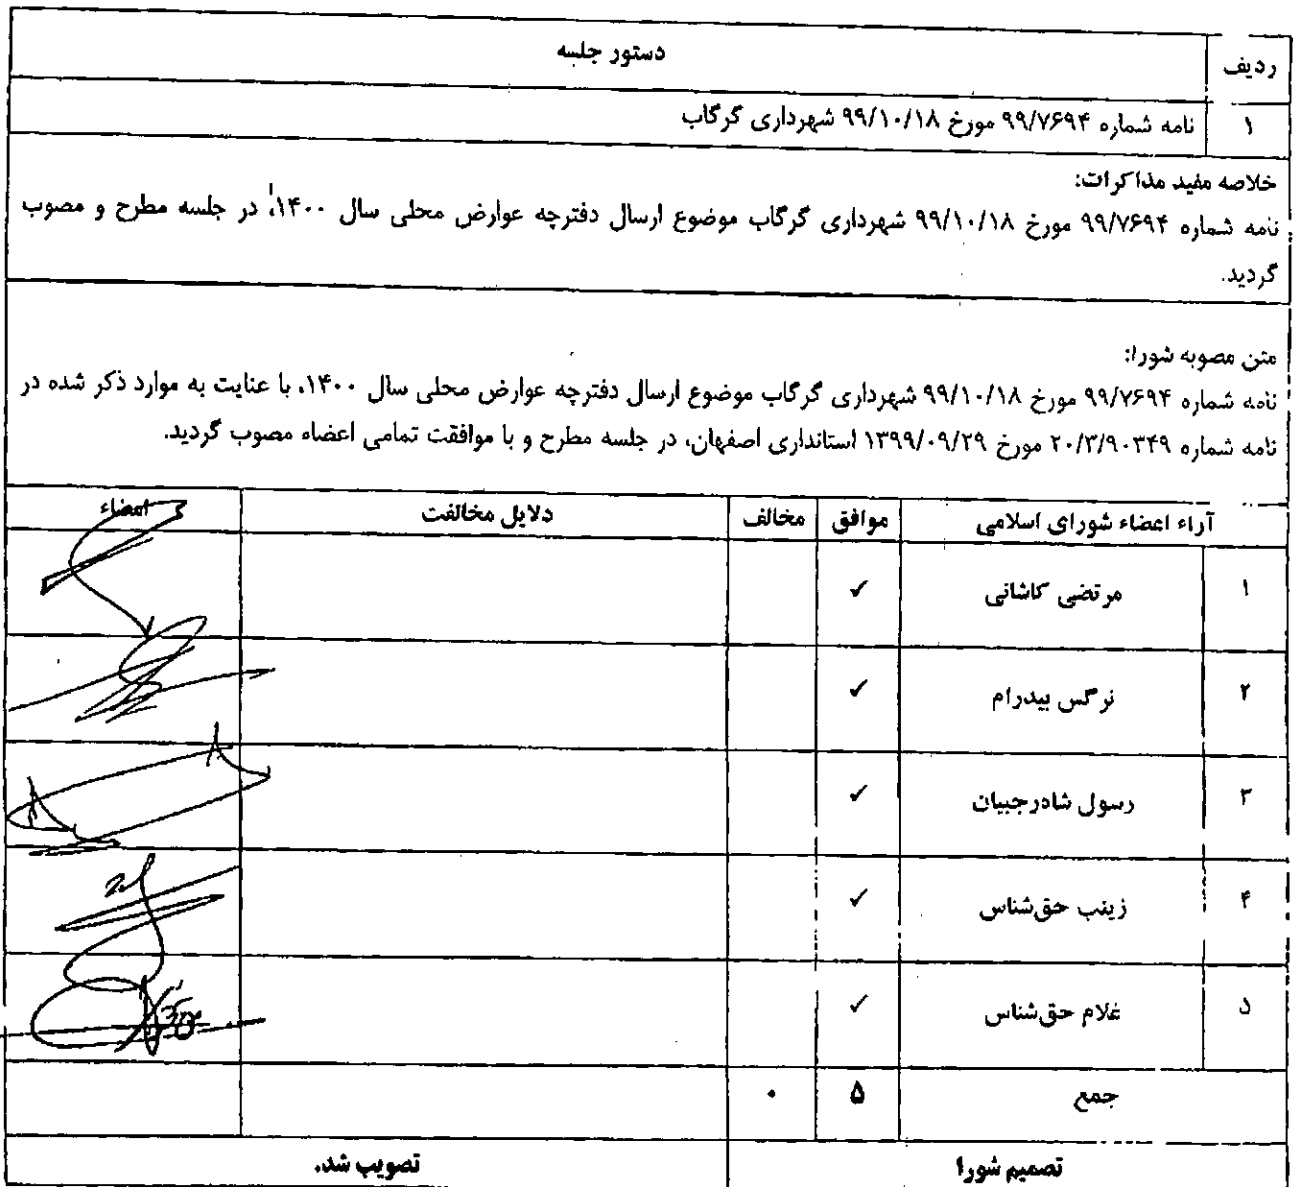 ردیف دستور جلسه
۱ نامه شماره ۹۹/۷۶۹۴ مورخ ۹۹/۱۰/۱۸ شهرداری گرگاب
خلاصه مفید مذاکرات:
نامه شماره ۹۹/۷۶۹۴ مورخ ۹۹/۱۰/۱۸ شهرداری گرگاب موضوع ارسال دفترچه عوارض محلی سال ۱۴۰۰، در جلسه مطرح و مصوب
گردید.
متن مصوبه شورا:
نامه شماره ۹۹/۷۶۹۴ مورخ ۹۹/۱۰/۱۸ شهرداری گرگاب موضوع ارسال دفترچه عوارض محلی سال ۱۴۰۰، با عنایت به موارد ذکر شده در
نامه شماره ۲۰/۳/۹۰۳۴۹ مورخ ۱۳۹۹/۰۹/۲۹ استانداری اصفهان، در جلسه مطرح و با موافقت تمامی اعضاء مصوب گردید.
آراء اعضاء شورای اسلامی موافق مخالف دلایل مخالفت امضاء
۱ مرتضی کاشانی ✓
۲ نرگس بیدرام ✓
۳ رسول شادرجبیان ✓
۴ زینب حق‌شناس ✓
۵ غلام حق‌شناس ✓
جمع ۵ ۰
تصمیم شورا تصویب شد.